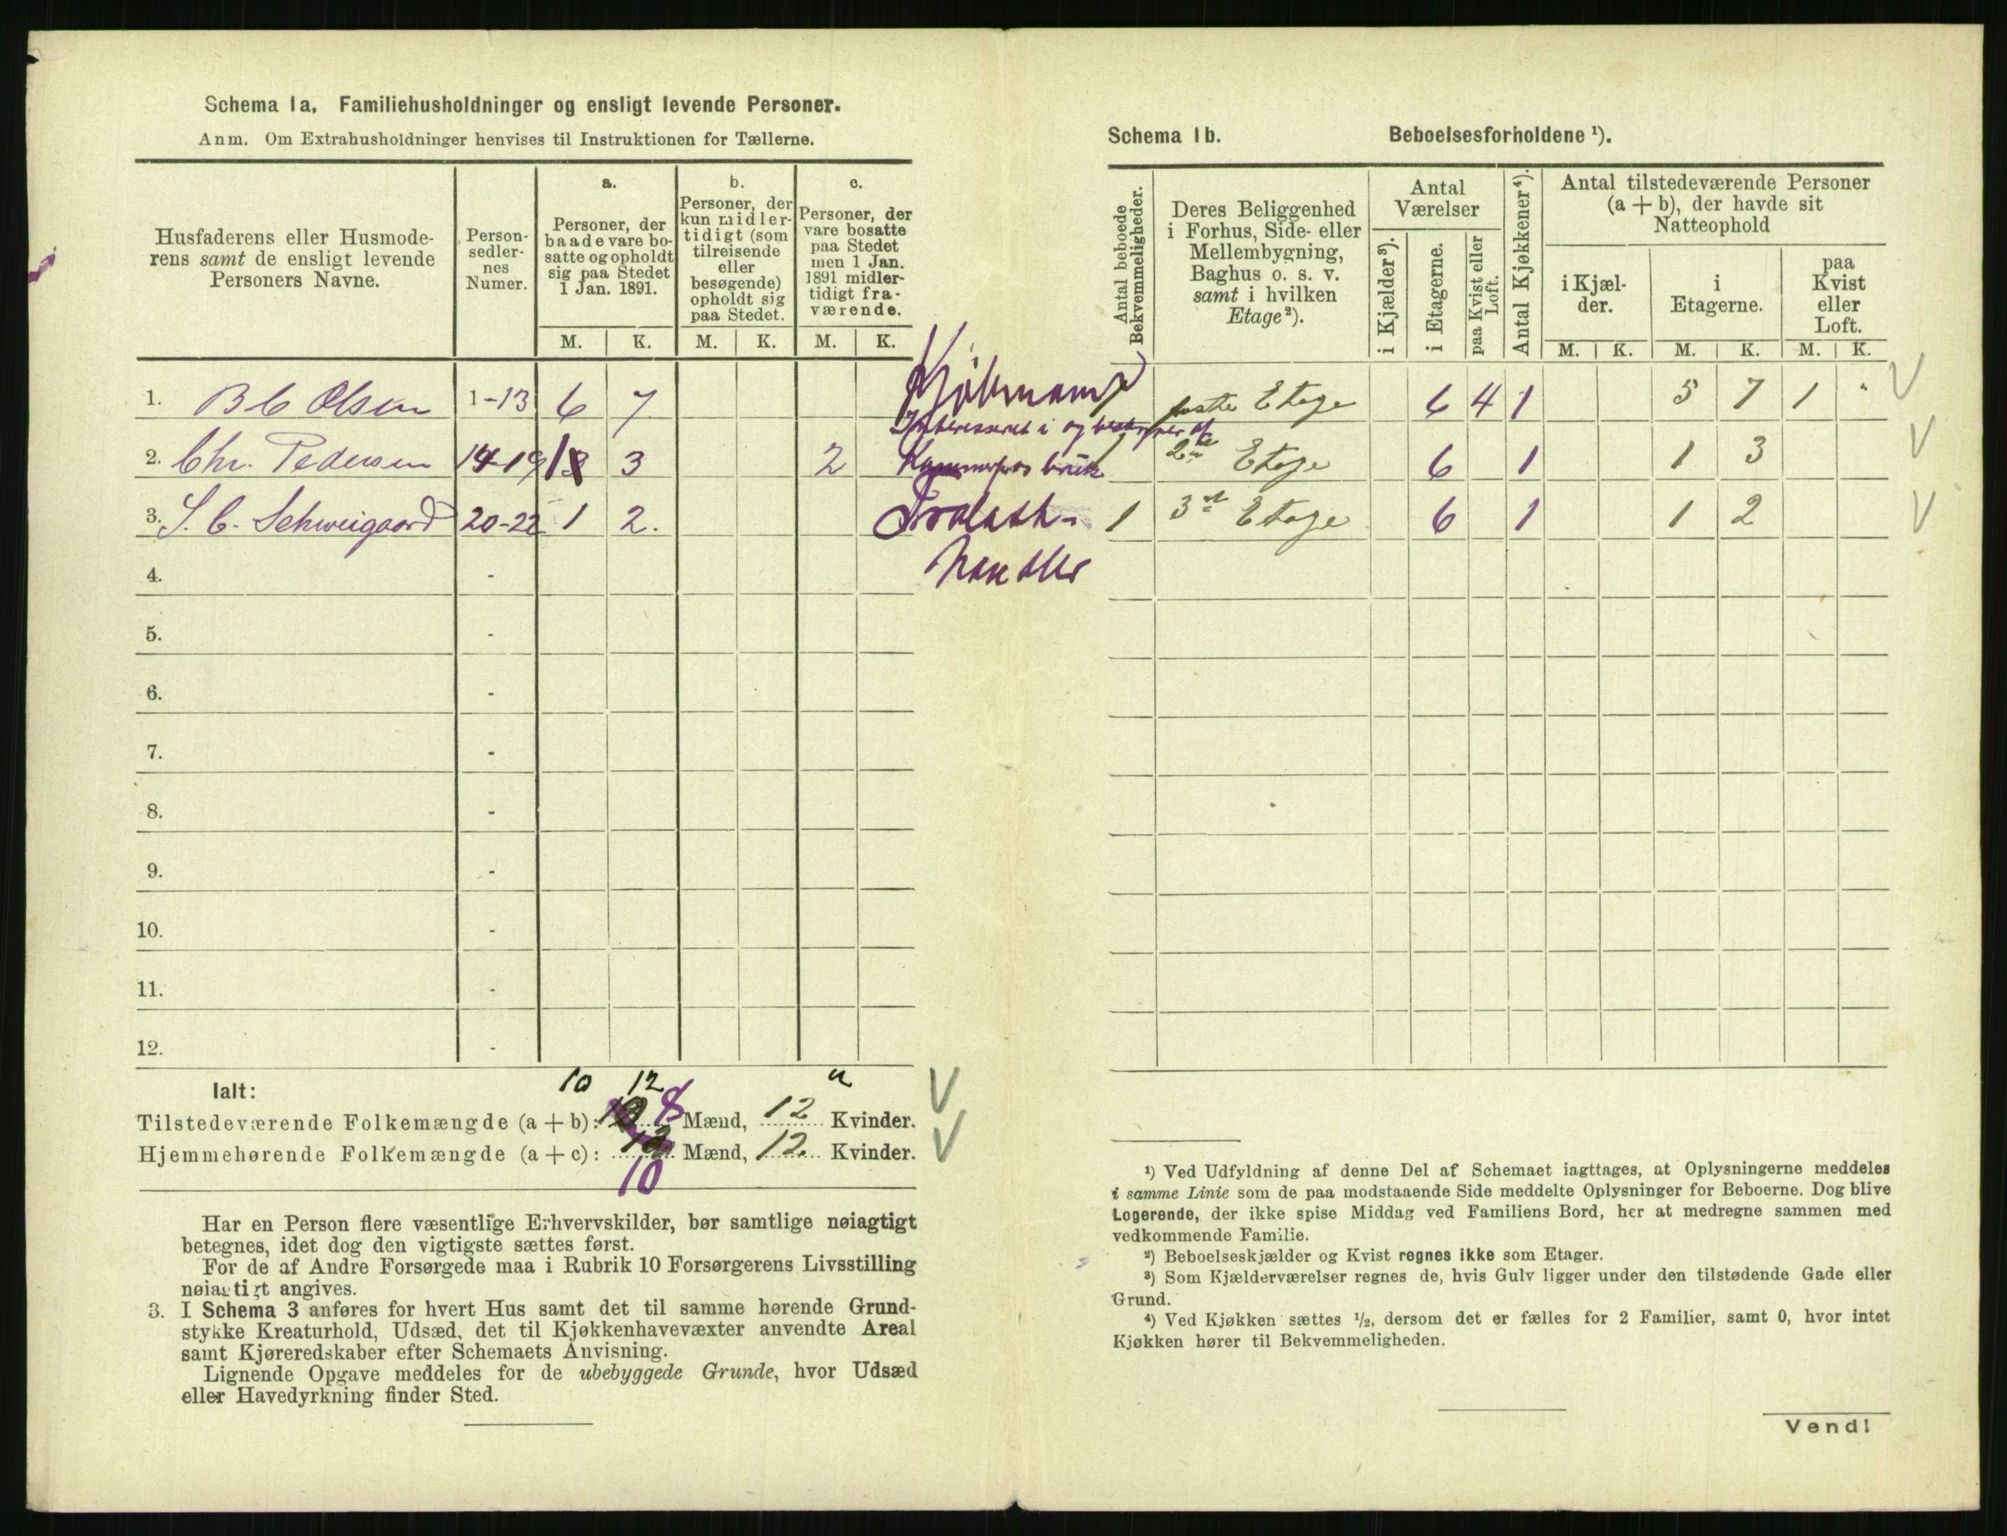 Schema 1a. Familiehusholdninger og ensligt levende Personer.
Anm. Om Extrahusholdninger henvises til Instruktionen for Tællerne.
Husfaderens eller Husmode-
rens samt de ensligt levende
Personers Navne.
Person-
sedler-
nes
Numer.
a.
Personer, der
baade vare bo-
satte og opholdt
sig paa Stedet
1 Jan. 1891.
b.
Personer, der
kun midler-
tidigt (som
tilreisende
eller
besøgende)
opholdt sig
paa Stedet.
c.
Personer, der
vare bosatte
paa Stedet
men 1 Jan.
1891 midler-
tidigt fra-
værende.
M. K. M. K. M. K.
1. B C Olsen 1-13 6 7
2. Chr. Pedersen 14-19 1 3 2
3. S. C. Schweigaard 20-22 1 2.
4. -
5. -
6. -
7. -
8. -
9. -
10. -
11. -
12. -
Kjøbmand
Interesseret i og bestyrer af
Trælast-
handler
Ialt: 10 12 "
Tilstedeværende Folkemængde (a + b): 8 Mænd, 12 Kvinder.
Hjemmehørende Folkemængde (a + c): 12 Mænd, 12. Kvinder.
10
Har en Person flere væsentlige Erhvervskilder, bør samtlige nøiagtigt
betegnes, idet dog den vigtigste sættes først.
For de af Andre Forsørgede maa i Rubrik 10 Forsørgerens Livsstilling
nøiagtigt angives.
3. I Schema 3 anføres for hvert Hus samt det til samme hørende Grund-
stykke Kreaturhold, Udsæd, det til Kjøkkenhavevæxter anvendte Areal
samt Kjøreredskaber efter Schemaets Anvisning.
Lignende Opgave meddeles for de ubebyggede Grunde, hvor Udsæd
eller Havedyrkning finder Sted.
Schema 1b. Beboelsesforholdene ¹).
Antal beboede
Bekvemmeligheder.
Deres Beliggenhed
i Forhus, Side- eller
Mellembygning,
Baghus o. s. v.
samt i hvilken
Etage²).
Antal
Værelser
i Kjælder³).
i Etagerne.
paa Kvist eller
Loft.
Antal Kjøkkener⁴).
Antal tilstedeværende Personer
(a + b), der havde sit
Natteophold
i Kjæl-
der.
i
Etagerne.
paa
Kvist
eller
Loft.
M. K. M. K. M. K.
1 Etage 6 4 1 5 7 1 "
1 2den Etage 6 1 1 3
1 3die Etage 6 1 1 2
¹) Ved Udfyldning af denne Del af Schemaet iagttages, at Oplysningerne meddeles
i samme Linie som de paa modstaaende Side meddelte Oplysninger for Beboerne. Dog blive
Logerende, der ikke spise Middag ved Familiens Bord, her at medregne sammen med
vedkommende Familie.
²) Beboelseskjælder og Kvist regnes ikke som Etager.
³) Som Kjælderværelser regnes de, hvis Gulv ligger under den tilstødende Gade eller
Grund.
⁴) Ved Kjøkken sættes ½, dersom det er fælles for 2 Familier, samt 0, hvor intet
Kjøkken hører til Bekvemmeligheden.
Vend!